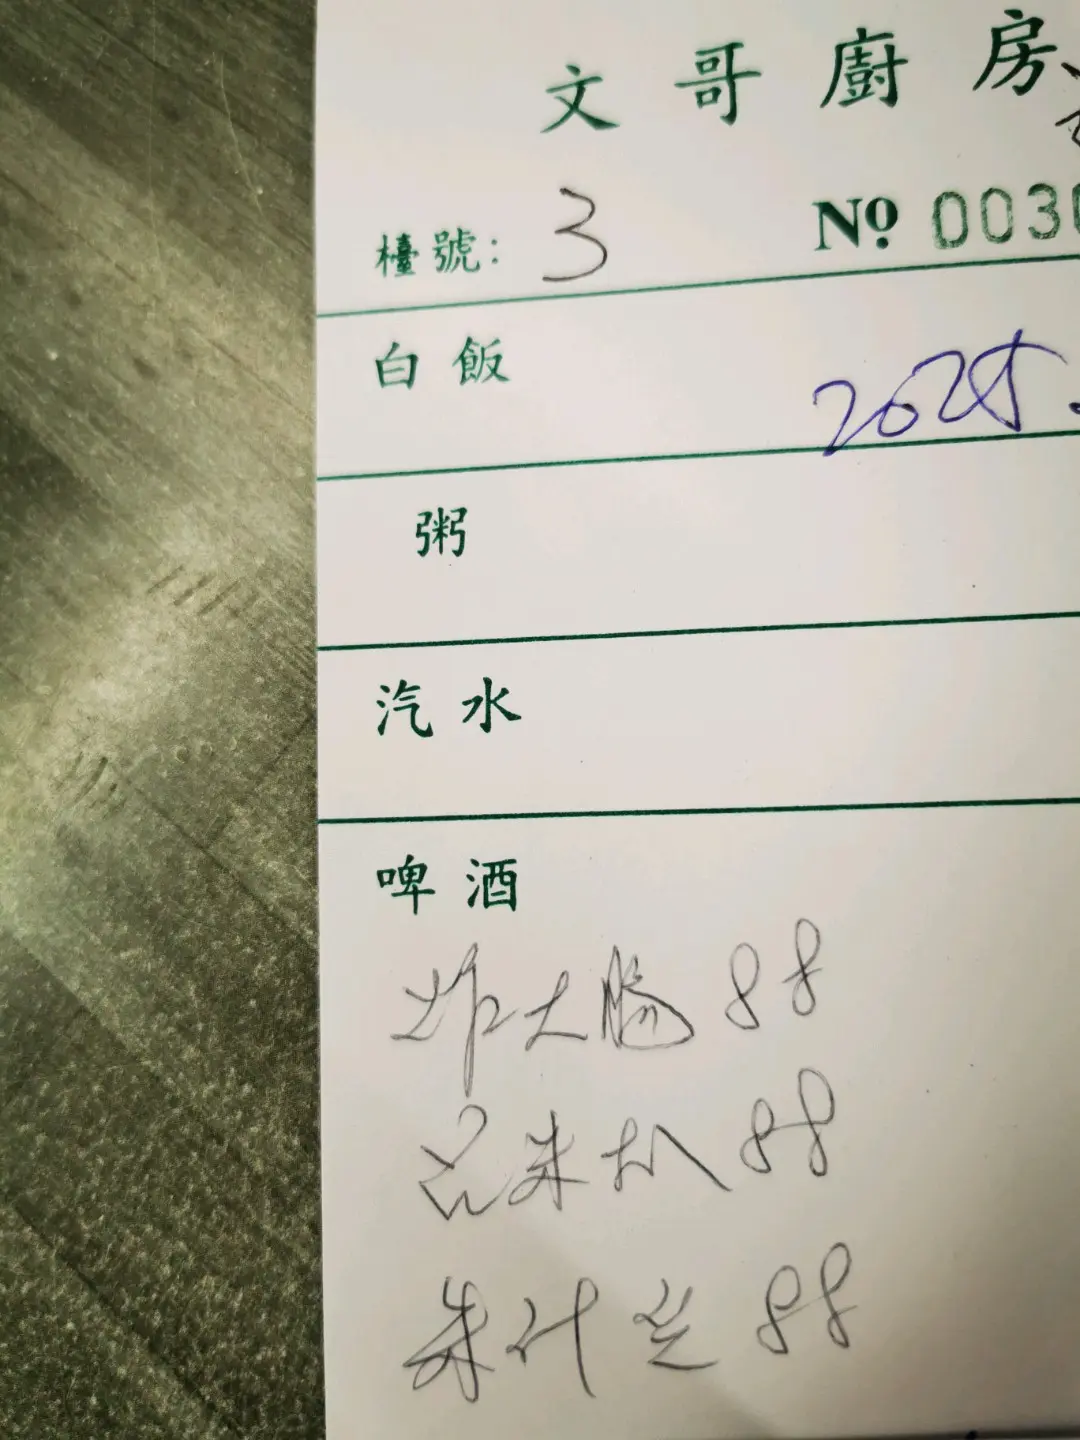 文哥廚房
檯號: 3 Nº 0030
白飯
2025.
粥
汽水
啤酒
炸大腸 88
88
88